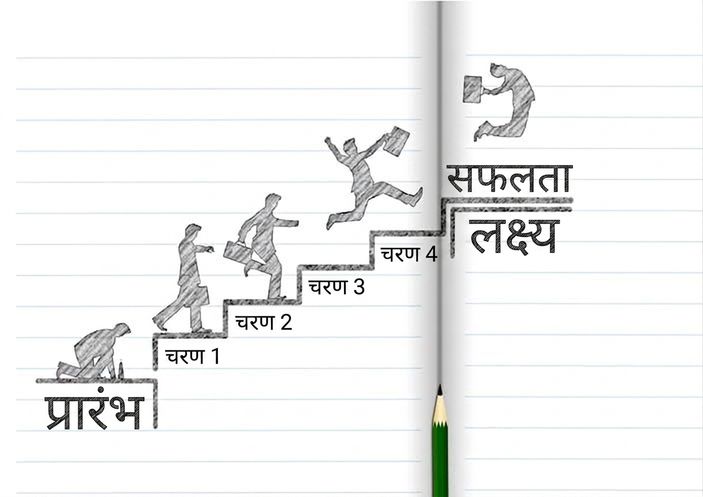 सफलता
लक्ष्य
चरण 4
चरण 3
चरण 2
चरण 1
प्रारंभ